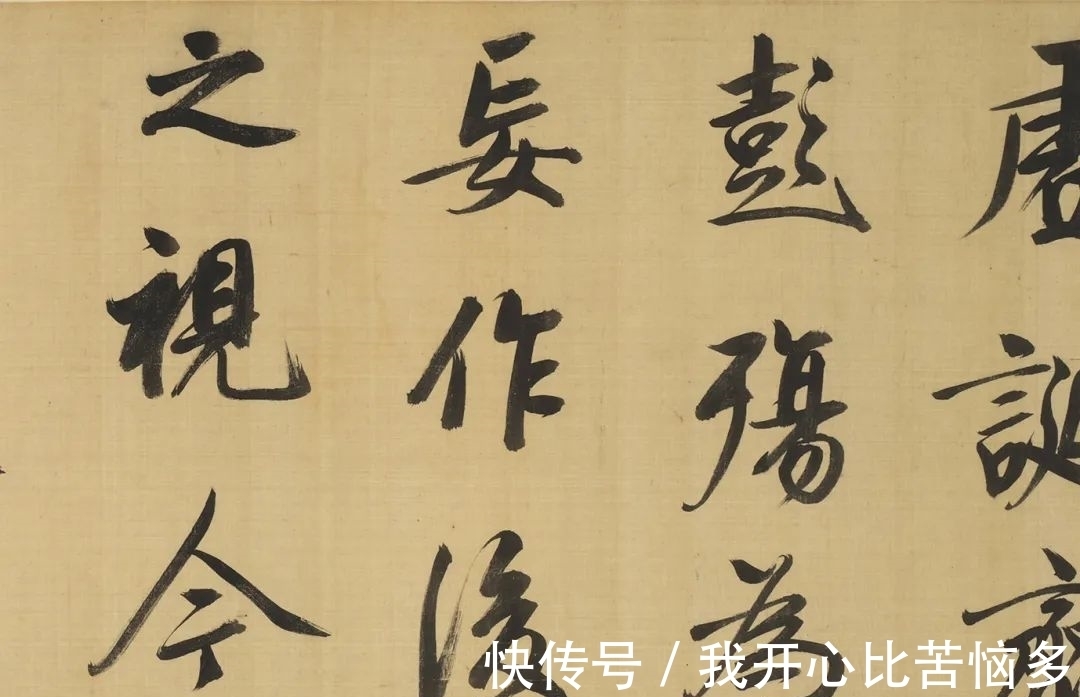 虛誕齊
彭殤為
妄作後
之視今
快传号 / 我开心比苦恼多